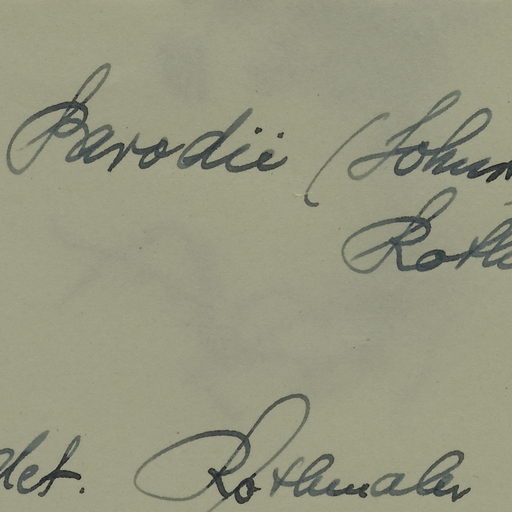 Parodii (Johns
Roth
det. Rothmaler